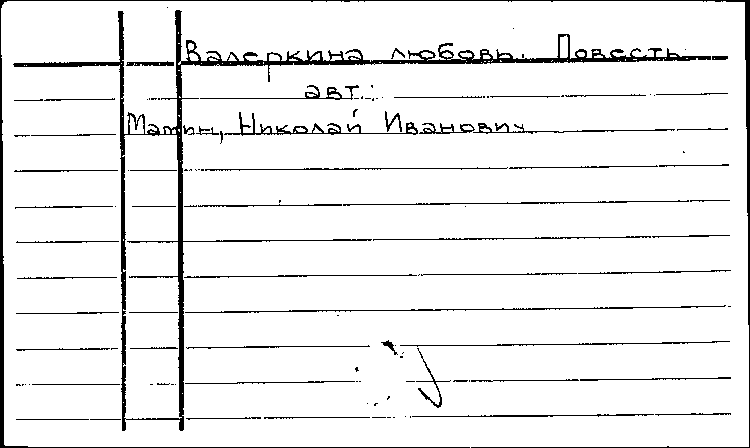 Валеркина любовь. Повесть.
авт.:
Матин, Николай Иванович